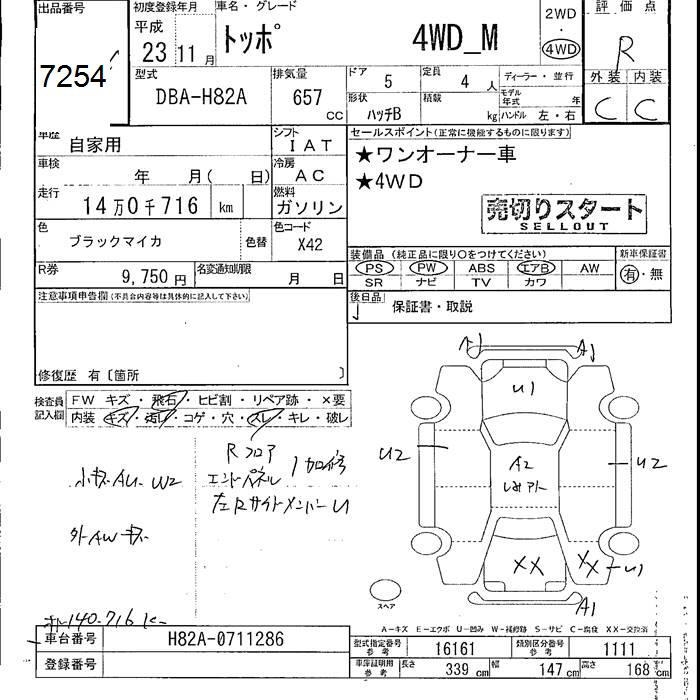 出品番号
7254
初度登録年月
平成
23 11月
車名・グレード
トッポ 4WD_M
2WD
・
4WD
評価点
R
外装 内装
C C
型式
DBA-H82A
排気量
657
CC
ドア 5
定員 4 人
ディーラー・並行
形状
ハッチB
積載 kg
モデル年式 年
ハンドル 左・右
車歴
自家用
シフト
IAT
車検
年 月( 日)
冷房
AC
走行
14万0千716 km
燃料
ガソリン
色
ブラックマイカ
色替
色コード
X42
R券
9,750円
名変通知期限
月 日
セールスポイント(正常に機能するものに限ります)
★ワンオーナー車
★4WD
売切りスタート
SELLOUT
装備品(純正品に限り○をつけてください)
PS PW ABS エアB AW
SR ナビ TV カワ
新車保証書
有・無
後日品
保証書・取説
注意事項申告欄(不具合内容等は具体的に記載して下さい)
修復歴 有〔箇所 〕
検査員
記入欄
FW キズ・飛石・ヒビ割・リペア跡・×要
内装 キズ・汚レ・コゲ・穴・スレ・キレ・破レ
小キズ AU W2
外AWキズ
Rフロア
エンドパネル
加修
左Rサイドメンバー U
A1 A1
U1
U2 U2
A2
XX XX U1
A1
スペア
140.716
A-キズ E-エクボ U-凹み W-補修跡 S-サビ C-腐食 XX-交換済
車台番号 H82A-0711286
登録番号
型式指定番号
参考
16161
類別区分番号
参考
1111
車庫証明用
参考
長さ 339 cm 幅 147 cm 高さ 168 cm